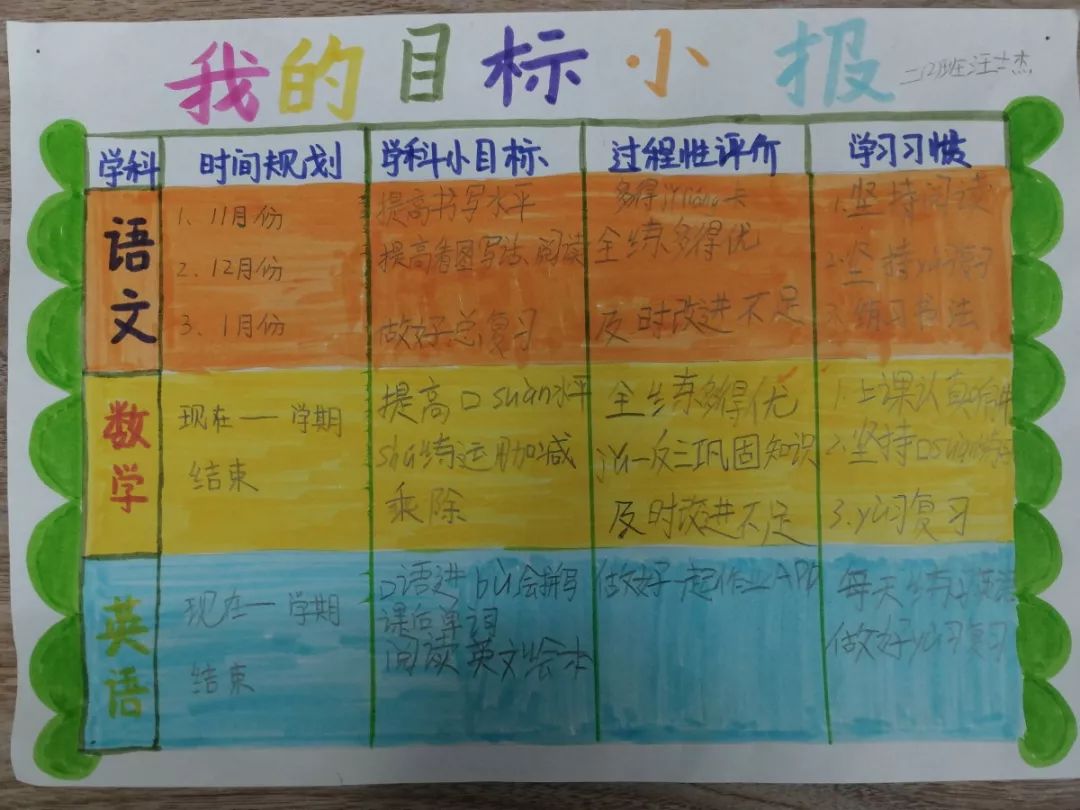 我的目标小报
二12班汪
杰
学科 时间规划 学科小目标 过程性评价 学习习惯
语文
1、11月份
2、12月份
3、1月份
提高书写水平
提高看图写话、阅读
做好总复习
多得 卡
全练多得优
及时改进不足
1.坚持阅读
2.坚持yù习
3.练习书法
数学
现在一学期
结束
提高口suàn水平
shú练运用加减
乘除
全练多得优
jǔ一反三巩固知识
及时改进不足
1.上课认真
2.坚持口suàn练
3.yù习复习
英语
现在一学期
结束
口语进bù会拼写
课后单词
阅读英文绘本
做好一起作业APP
每天练习英语
做好yù习复习